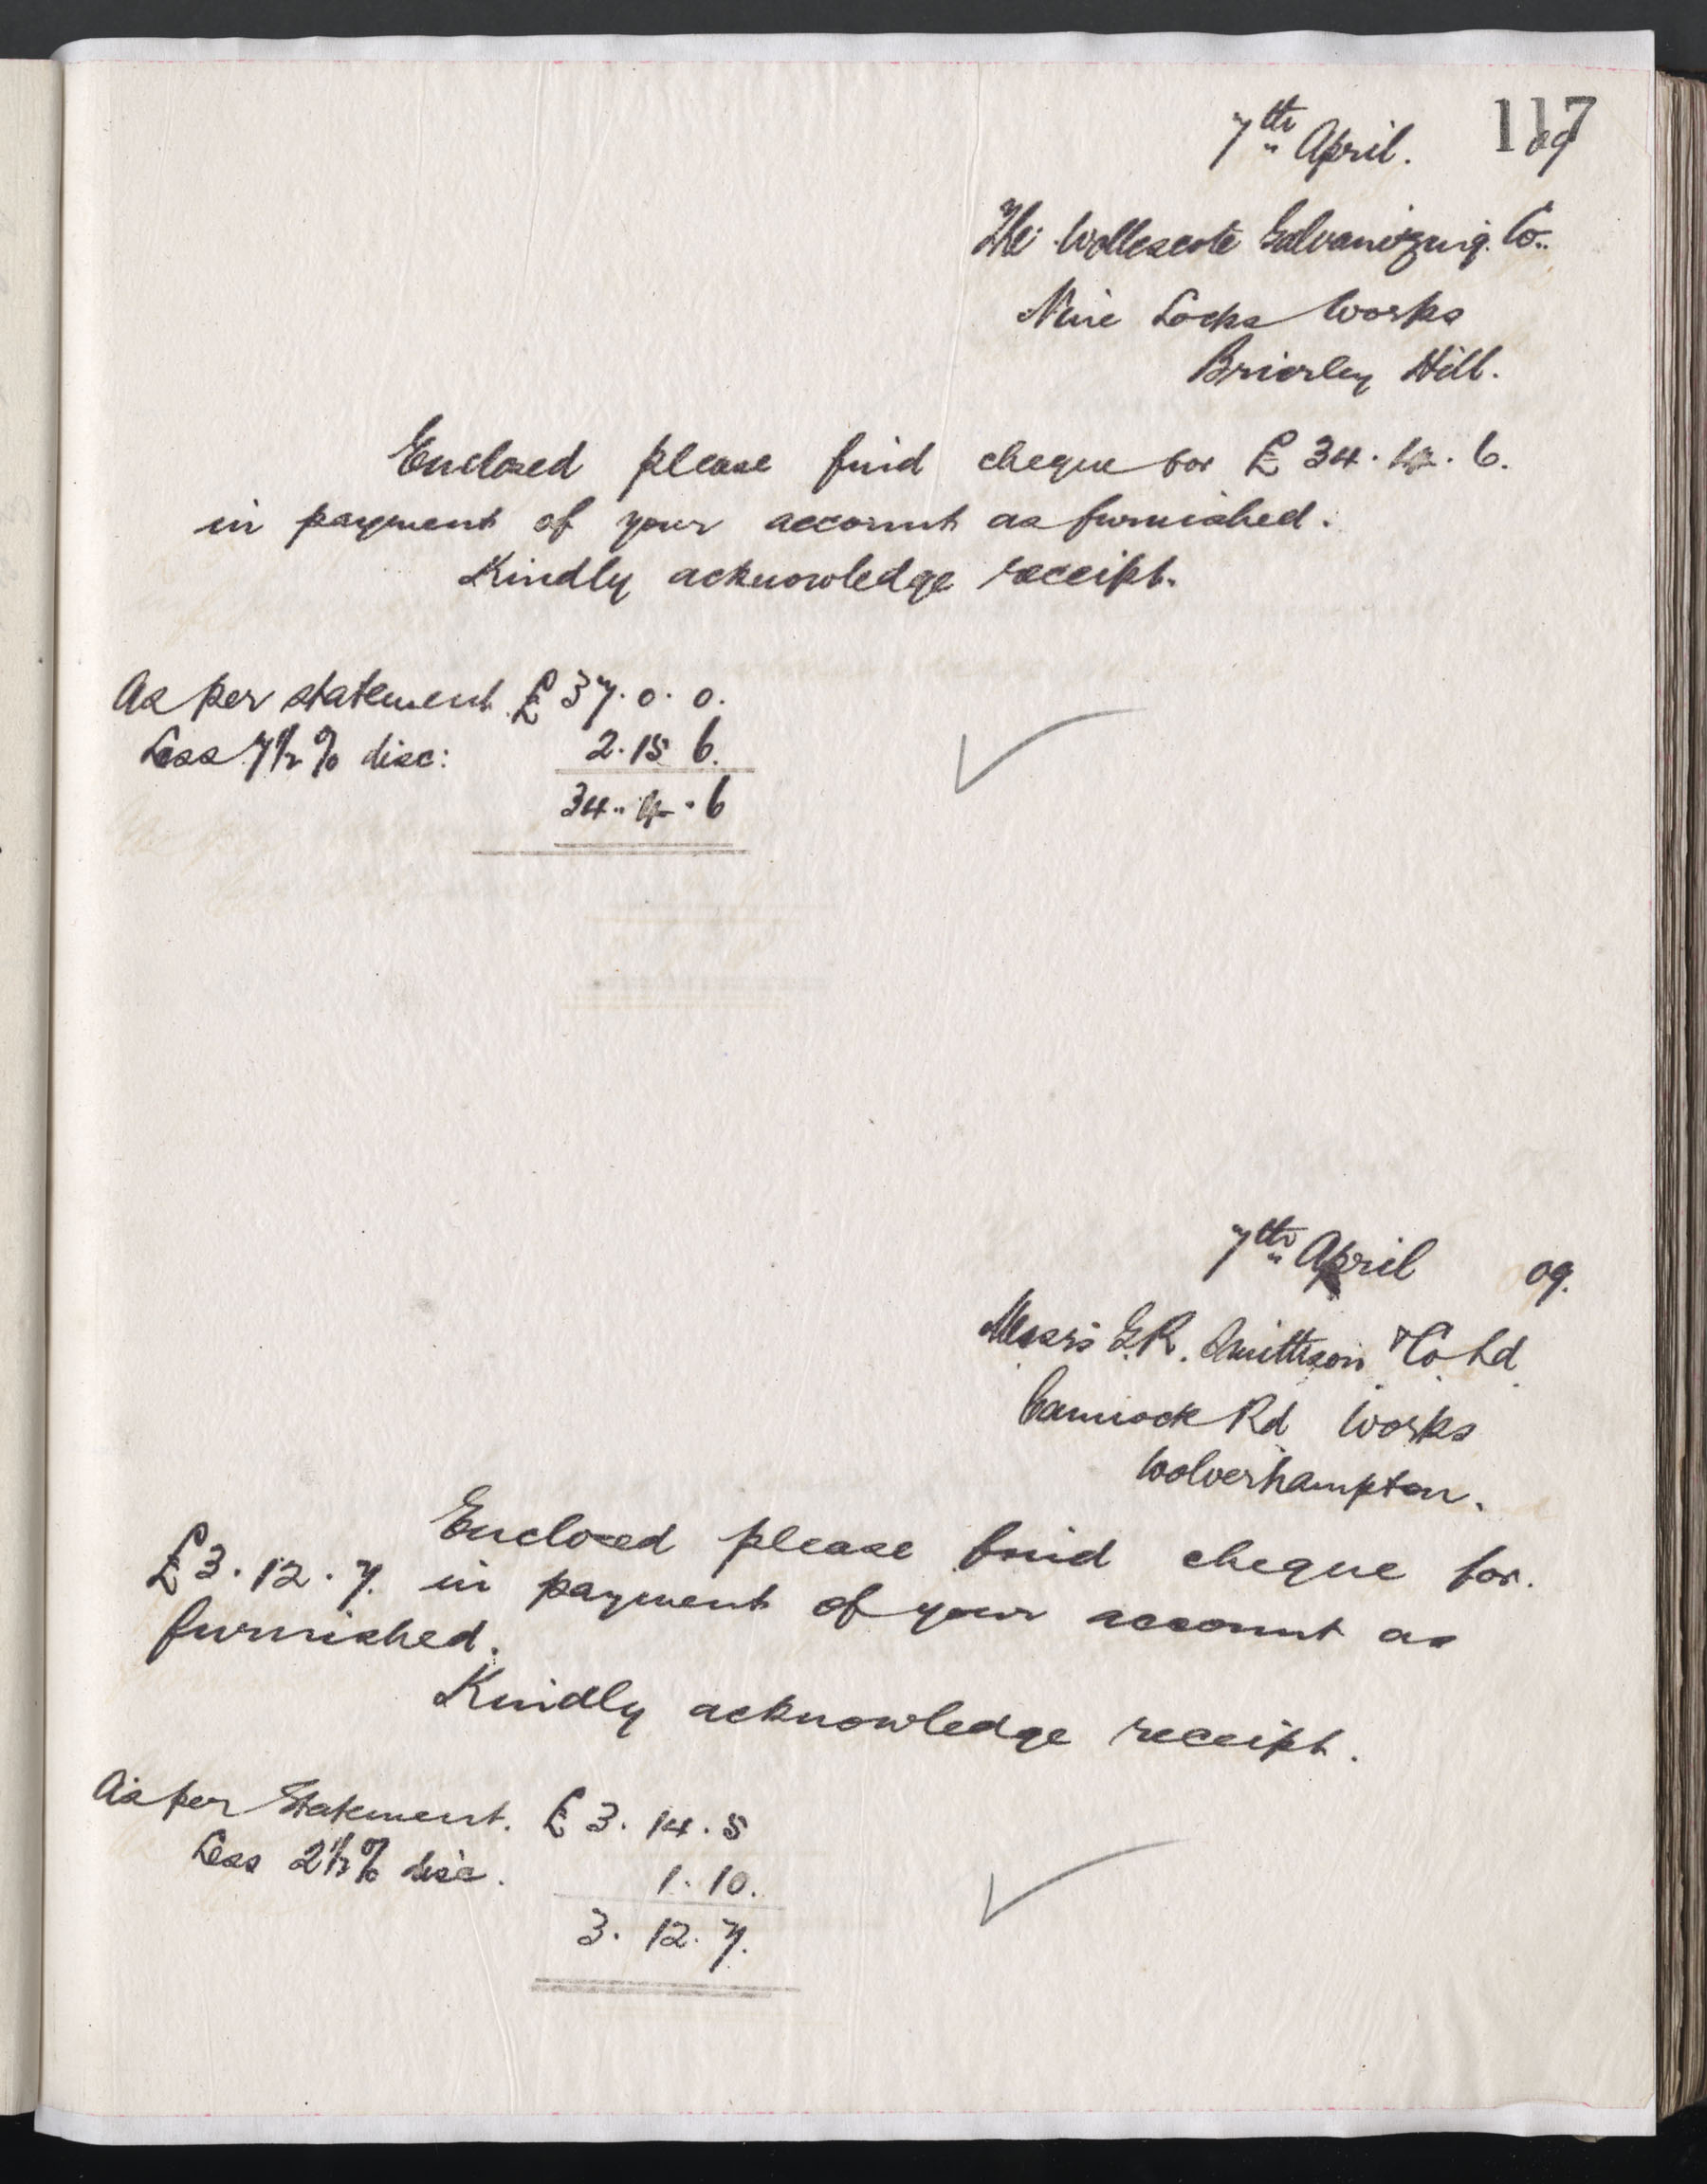 117
7th April. 09
The Wollescote Galvanizing. Co..
Nine Locks Works
Brierley Hill.
Enclosed please find cheque for £34.4.6.
in payment of your account as furnished.
Kindly acknowledge receipt.
As per statement £37.0.0.
Less 7½% disc: 2.15 6.
34..4.6
7th April 09.
Messrs G.R. Smithson & Co Ld
Cannock Rd Works
Wolverhampton.
Enclosed please find cheque for.
£3.12.7. in payment of your account as
furnished.
Kindly acknowledge receipt.
As per Statement. £3.14.5
Less 2½% disc. 1.10.
3.12.7.